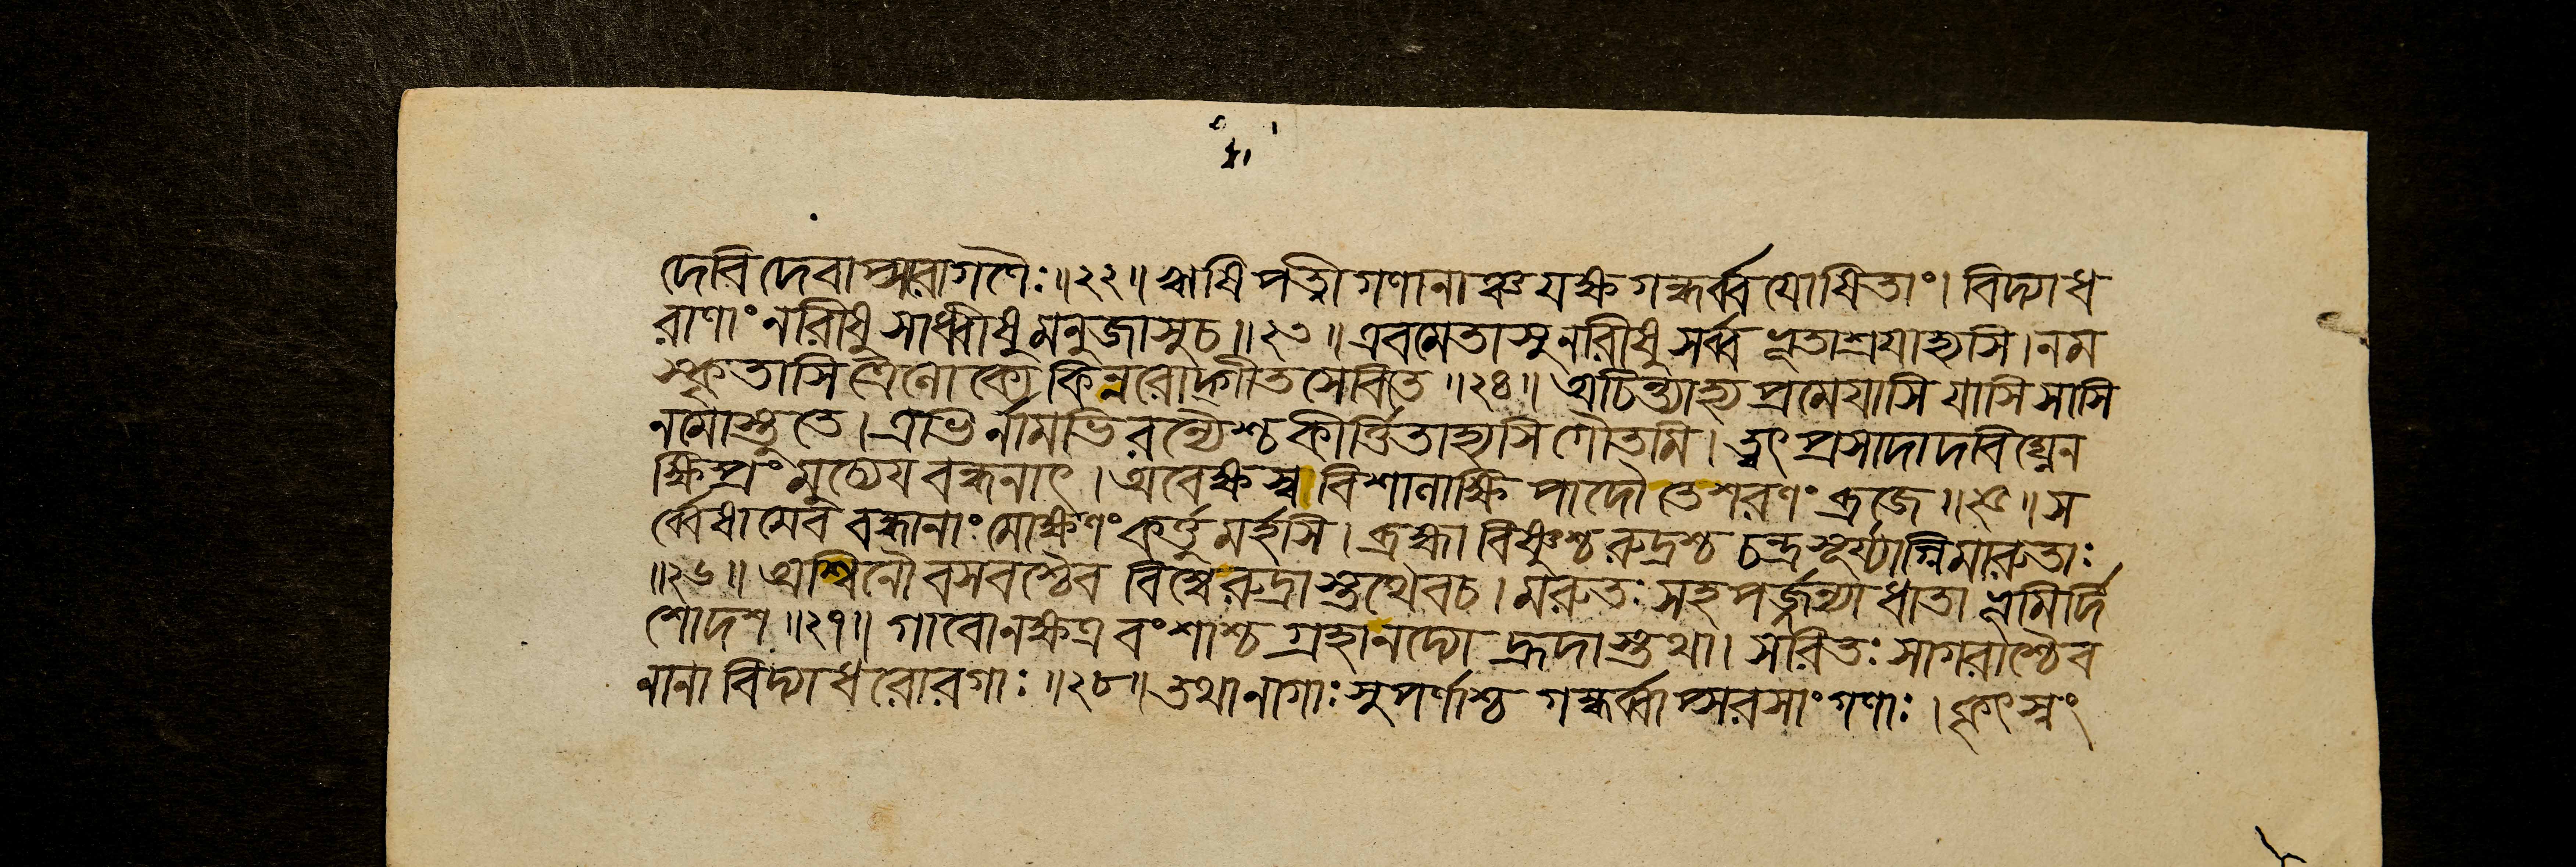 দেবি দেবাপ্সরাগণৈঃ॥২২॥ ঋষিপত্নীগণানাঞ্চ যক্ষগন্ধর্ব্বযোষিতাং। বিদ্যাধ
রাণাং নরীষু সাধ্বীষু মনুজাসুচ॥২৩॥ এবমেতাসু নরীষু সর্ব্বভূতাশ্রয়াহ্যসি। নম
স্কৃতাসি ত্রৈলোক্যে কিন্নরোদ্গীতসেবিতে॥২৪॥ অচিন্ত্যাহ্যপ্রমেয়াসি যাসি সাসি
নমোস্তুতে। এভির্নামভিরন্যৈশ্চ কীর্ত্তিতাহ্যসি গৌতমি। ত্বৎপ্রসাদাদবিঘ্নেন
ক্ষিপ্রং মুচ্যেয় বন্ধনাৎ। অবেক্ষস্ব বিশালাক্ষি পাদৌ তে শরণং ব্রজে॥২৫॥ স
র্ব্বেষামেব বন্ধানাং মোক্ষণং কর্ত্তুমর্হসি। ব্রহ্মা বিষ্ণুশ্চ রুদ্রশ্চ চন্দ্রসূর্য্যাগ্নিমারুতাঃ
॥২৬॥ অশ্বিনৌ বসবশ্চৈব বিশ্বেরুদ্রাস্তথৈবচ। মরুতঃ সহপর্জ্জন্যা ধাতা ভূমির্দি
শোদশ॥২৭॥ গাবোনক্ষত্রবংশাশ্চ গ্রহানদ্যো হ্রদাস্তথা। সরিতঃ সাগরাশ্চৈব
নানা বিদ্যাধরোরগাঃ॥২৮॥ তথা নাগাঃ সুপর্ণাশ্চ গন্ধর্ব্বাপ্সরসাং গণাঃ। কৃৎস্নং